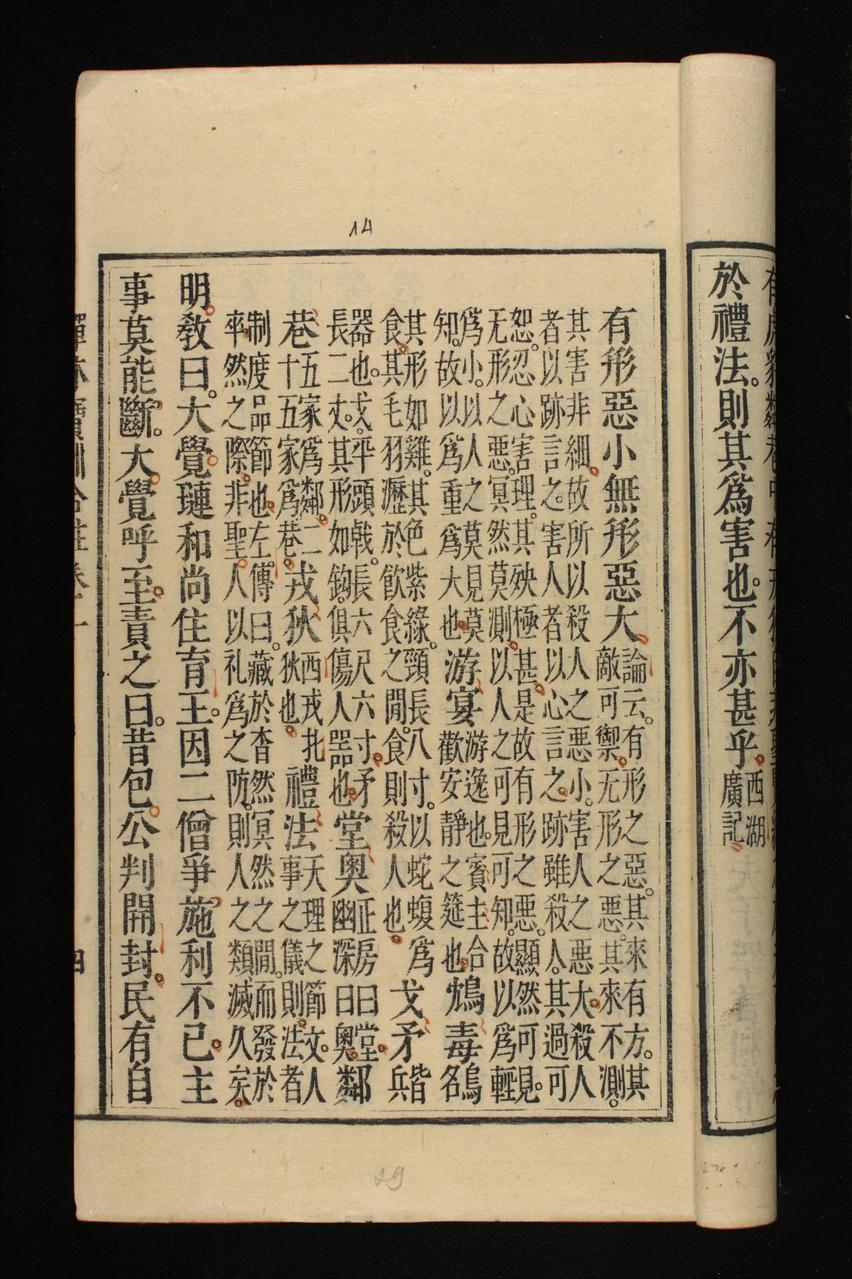 於禮法。則其爲害也。不亦甚乎。西湖
廣記
14
有形惡小無形惡大論云。有形之惡。其來有方。其
敵可禦。无形之惡。其來不測。
其害非細。故所以殺人之惡小。害人之惡大。殺人
者以跡言之。害人者以心言之。跡雖殺人。其過可
恕。忍心害理。其殃極甚。是故有形之惡。顯然可見。
无形之惡。冥然莫測。以人之可見可知。故以爲輕
爲小。以人之莫見莫
知。故以爲重爲大也。
游宴游逸也。賓主合
歡安靜之筵也。
鴆毒鳥
名
其形如雞。其色紫綠。頸長八寸。以蛇蝮爲
食。其毛羽瀝於飮食之間。食則殺人也。
戈矛皆
兵
器也。戈。平頭戟。長六尺六寸。矛
長二丈。其形如鉤。俱傷人噐也。
堂奧正房曰堂。
幽深曰奧。
鄰
巷五家爲鄰。二
十五家爲巷。
戎狄西戎北
狄也。
禮法天理之節文。人
事之儀則。法者
制度品節也。左傳曰。藏於杳然冥然之間。而發於
率然之際。非聖人以礼爲之防。則人之類滅久矣。
明敎曰。大覺璉和尚住育王。因二僧爭施利不已。主
事莫能斷。大覺呼至。責之曰。昔包公判開封。民有自
禪林寶訓合註卷一
四
29